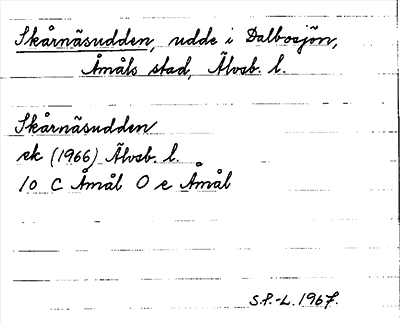 Skårnäsudden, udde i Dalbosjön,
Åmåls stad, Älvsb. l.
Skårnäsudden
ek (1966) Älvsb. l.
10 C Åmål O e Åmål
S.P.-L. 1967.